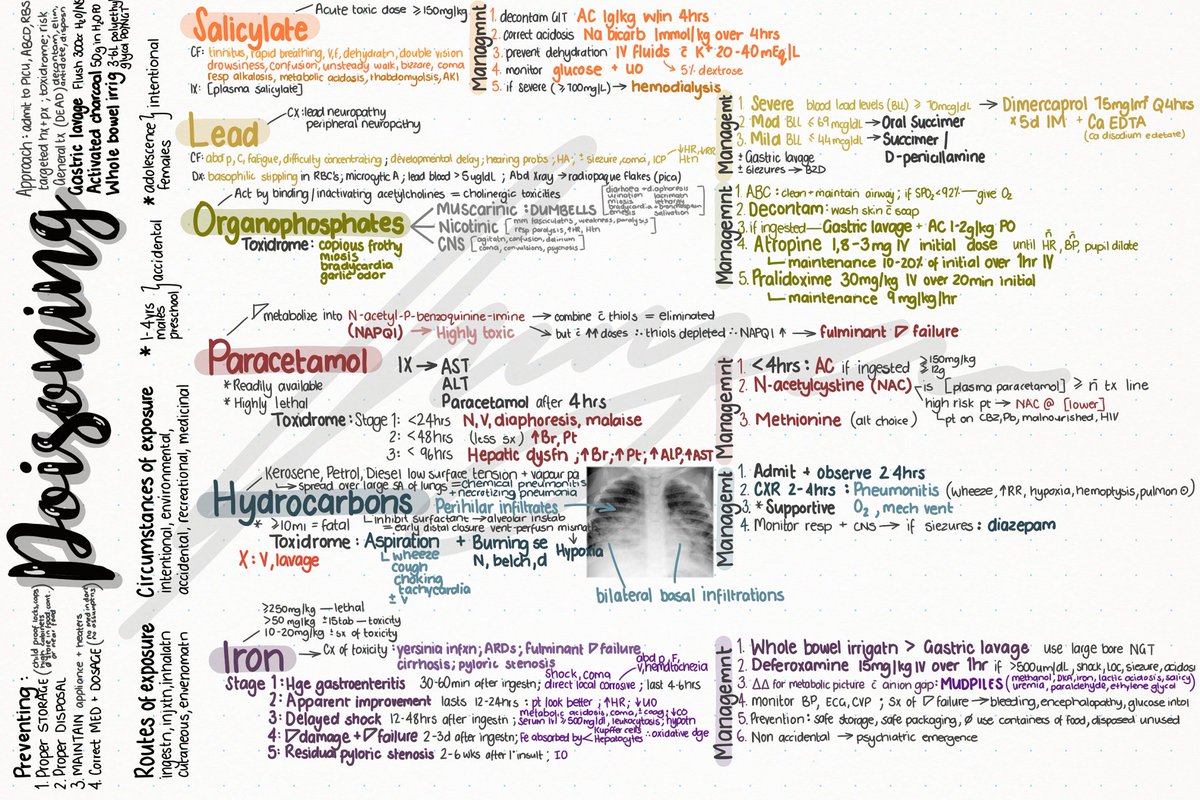 Poisoning
Approach: admit to PICU, ABCD, RBS
targeted hx+px; toxidrome; risk
General tx (DEAD) decontam, elim, antidote, disposn
Gastric lavage Flush 200cc H₂O/NS
Activated charcoal 50g in H₂O PO
Whole bowel irrig 3-6L polyethyl glycol PO/NGT
* adolescence females } intentional
* 1-4yrs males preschool } accidental
Circumstances of exposure
intentional, environmental,
accidental, recreational, medicinal
Routes of exposure
ingestn, injxtn, inhalatn
cutaneous, envenomatn
Preventing:
1. Proper STORAGE (child proof locks, caps)
2. Proper DISPOSAL
3. MAINTAIN appliance + heaters
4. Correct MED + DOSAGE (no med in dark) (no assumptns)
Acute toxic dose ≥150mg/kg
Salicylate
CF: tinnitus, rapid breathing, V, F, dehydratn, double vision
drowsiness, confusion, unsteady walk, bizzare, coma
resp alkalosis, metabolic acidosis, rhabdomyolsis, AKI
IX: [plasma salicylate]
Managmnt
1. decontam GIT AC 1g/kg w/in 4hrs
2. correct acidosis Na bicarb 1mmol/kg over 4hrs
3. prevent dehydration IV fluids c̄ K⁺ 20-40mEq/L
4. monitor glucose + UO
5% dextrose
5. if severe (≥700mg/L) → hemodialysis
CX: lead neuropathy
peripheral neuropathy
Lead
CF: abd p, C, fatigue, difficulty concentrating; developmental delay; hearing probs; HA; ± siezure, coma, ICP
Dx: basophilic stippling in RBC's; microcytic A; lead blood >5ug/dL; Abd Xray → radiopaque flakes (pica)
Managemt
1. Severe blood lead levels (BLL) ≥ 70mcg/dL → Dimercaprol 75mg/m² Q4hrs
x5d IM + Ca EDTA
(ca disodium edetate)
2. Mod BLL ≤69mcg/dL → Oral Succimer
3. Mila BLL ≤44mcg/dL → Succimer /
D-penicillamine
± Gastric lavage
± Siezures → BZD
Act by binding/inactivating acetylcholines = cholinergic toxicities
Organophosphates
Muscarinic: DUMBELLS
diarrhoea + diaphoresis
urination
miosis
bradycardia + bronchospasm
emesis
lacrimatn
lethargy
salivation
Nicotinic [mm fasciculatns, weakness, paralysis
resp paralysis, ↑HR, Htn]
CNS [agitatn, confusion, delirium
coma, convulsions, psychosis]
Toxidrome: copious frothy
miosis
bradycardia
garlic odor
Managemnt
1. ABC: clean + maintain airway; if SPO₂ <92% — give O₂
2. Decontam: wash skin c̄ soap
3. if ingested — Gastric lavage + AC 1-2g/kg PO
4. Atropine 1,8-3mg IV initial dose until n̄ HR, n̄ BP, pupil dilate
maintenance 10-20% of initial over 1hr IV
5. Pralidoxime 30mg/kg IV over 20min initial
maintenance 9mg/kg/hr
metabolize into N-acetyl-P-benzoquinine-imine → combine c̄ thiols = eliminated
(NAPQI) → Highly toxic → but c̄ ↑↑ doses ∴ thiols depleted ∴ NAPQI ↑ → fulminant failure
Paracetamol
* Readily available
* Highly lethal
IX → AST
ALT
Paracetamol after 4hrs
Toxidrome: Stage 1: <24hrs N, V, diaphoresis, malaise
2: <48hrs (less sx) ↑Br, Pt
3: < 96hrs Hepatic dysfn; ↑Br; ↑Pt; ↑ALP, ↑AST
Managemnt
1. <4hrs: AC if ingested ≥150mg/kg ≥12g
2. N-acetylcystine (NAC) is [plasma paracetamol] ≥ n̄ tx line
high risk pt → NAC @ [lower]
pt on CBZ, Pb, malnourished, HIV
3. Methionine (alt choice)
Kerosene, Petrol, Diesel low surface tension + vapour pa
spread over large SA of lungs = chemical pneumonitis
+ necrotizing pneumonia
Hydrocarbons
Perihilar infiltrates
* ≥10ml = Fatal
inhibit surfactant → alveolar instab
= early distal closure vent perfusn mismat
Hypoxia
Toxidrome: Aspiration + Burning se
N, belch, d
wheeze
cough
choking
tachycardia
± V
X: V, lavage
bilateral basal infiltrations
Managemnt
1. Admit + observe 24hrs
2. CXR 2-4hrs: Pneumonitis (wheeze, ↑RR, hypoxia, hemoptysis, pulmon
3. * Supportive O₂, mech vent
4. Monitor resp + CNS → if siezures: diazepam
≥250mg/kg — lethal
>50mg/kg ±15tab — toxicity
10-20mg/kg ± sx of toxicity
Iron
Cx of toxicity: yersinia infxn; ARDs; fulminant failure
cirrhosis; pyloric stenosis
Stage 1: Hge gastroenteritis 30-60min after ingestn; shock, coma direct local corrosive; last 4-6hrs
abd p, F, V, hematochezia
2: Apparent improvement lasts 12-24hrs: pt look better; ↑HR; ↓UO
3: Delayed shock 12-48hrs after ingestn; metabolic acidosis, coma, ± coag; ↑CO
serum lvl ≥500mg/dl, leukocytosis; hypotn
4: damage + failure 2-3d after ingestn; Fe absorbed by Kupffer cells Hepatocytes ∴ oxidative dge
5: Residual pyloric stenosis 2-6wks after 1° insult; IO
Managemnt
1. Whole bowel irrigatn > Gastric lavage use large bore NGT
2. Deferoxamine 15mg/kg IV over 1hr if >500um/dL, shock, LOC, siezure, acidosi
3. ΔΔ for metabolic picture c̄ anion gap: MUDPILES (methanol, DKA, iron, lactic acidosis, salicy
uremia, paraldehyde, ethylene glycol)
4. monitor BP, ECG, CVP; Sx of failure → bleeding, encephalopathy, glucose intol
5. Prevention: safe storage, safe packaging, ∅ use containers of food, disposed unused
6. Non accidental → psychiatric emergence